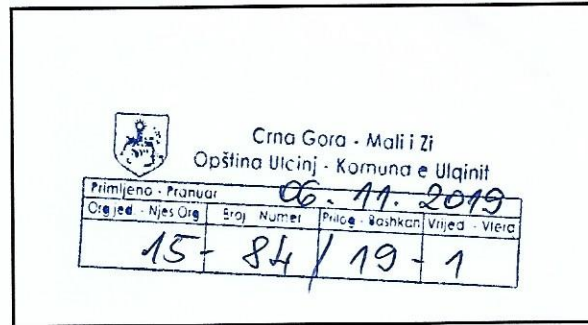 Crna Gora - Mali i Zi
Opština Ulcinj - Komuna e Ulqinit
Primljeno - Pranuar 06. 11. 2019
Org jed - Njes Org Broj Numer Prilog - Bashkan Vrijed - Vlera
15 - 84 / 19 - 1